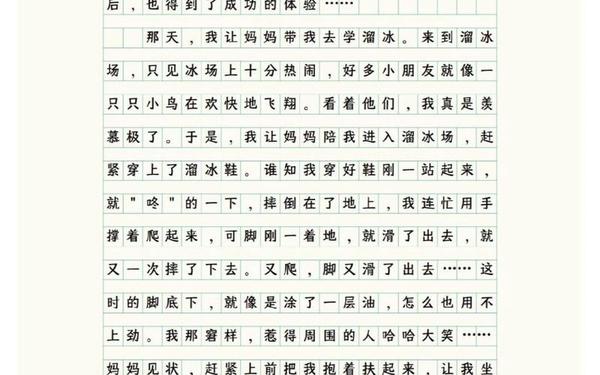 后，也得到了成功的体验……
那天，我让妈妈带我去学溜冰。来到溜冰
场，只见冰场上十分热闹，好多小朋友就像一
只只小鸟在欢快地飞翔。看着他们，我真是羡
慕极了。于是，我让妈妈陪我进入溜冰场，赶
紧穿上了溜冰鞋。谁知我穿好鞋刚一站起来，
就"咚"的一下，摔倒在了地上，我连忙用手
撑着爬起来，可脚刚一着地，就滑了出去，就
又一次摔了下去。又爬，脚又滑了出去……这
时的脚底下，就像是涂了一层油，怎么也用不
上劲。我那窘样，惹得周围的人哈哈大笑……
妈妈见状，赶紧上前把我抱着扶起来，让我坐